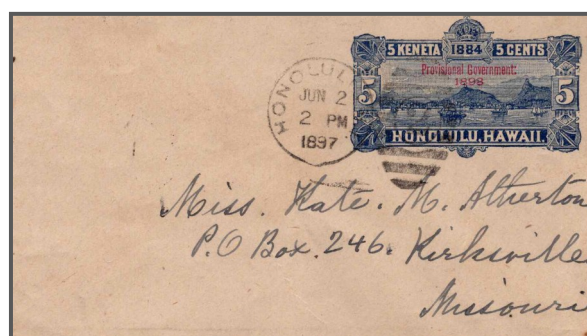 5 KENETA 1884 5 CENTS
Provisional Government
1893
5 5
HONOLULU, HAWAII.
HONOLULU
JUN 2
2 PM
1897
Miss. Kate. M. Atherton
P.O Box. 246. Kirksville
Missouri